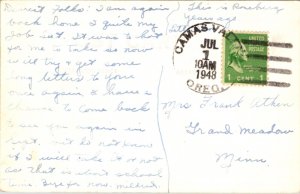 Dearest Folks: I am again
back home I quite my
job yet. It was to hot
for me to take so now
will try & get some
long letters to your
once again & have a
to come back
see you again in
Sept. but do not know
if I will take it or not
as that is school
time. Bye for now.
This is Roseburg
years ago
CAMAS VALLEY
JUL
7
10AM
1948
OREG.
UNITED STATES POSTAGE
1 CENT 1
Mrs. Frank Athen
Grand Meadow
Minn.